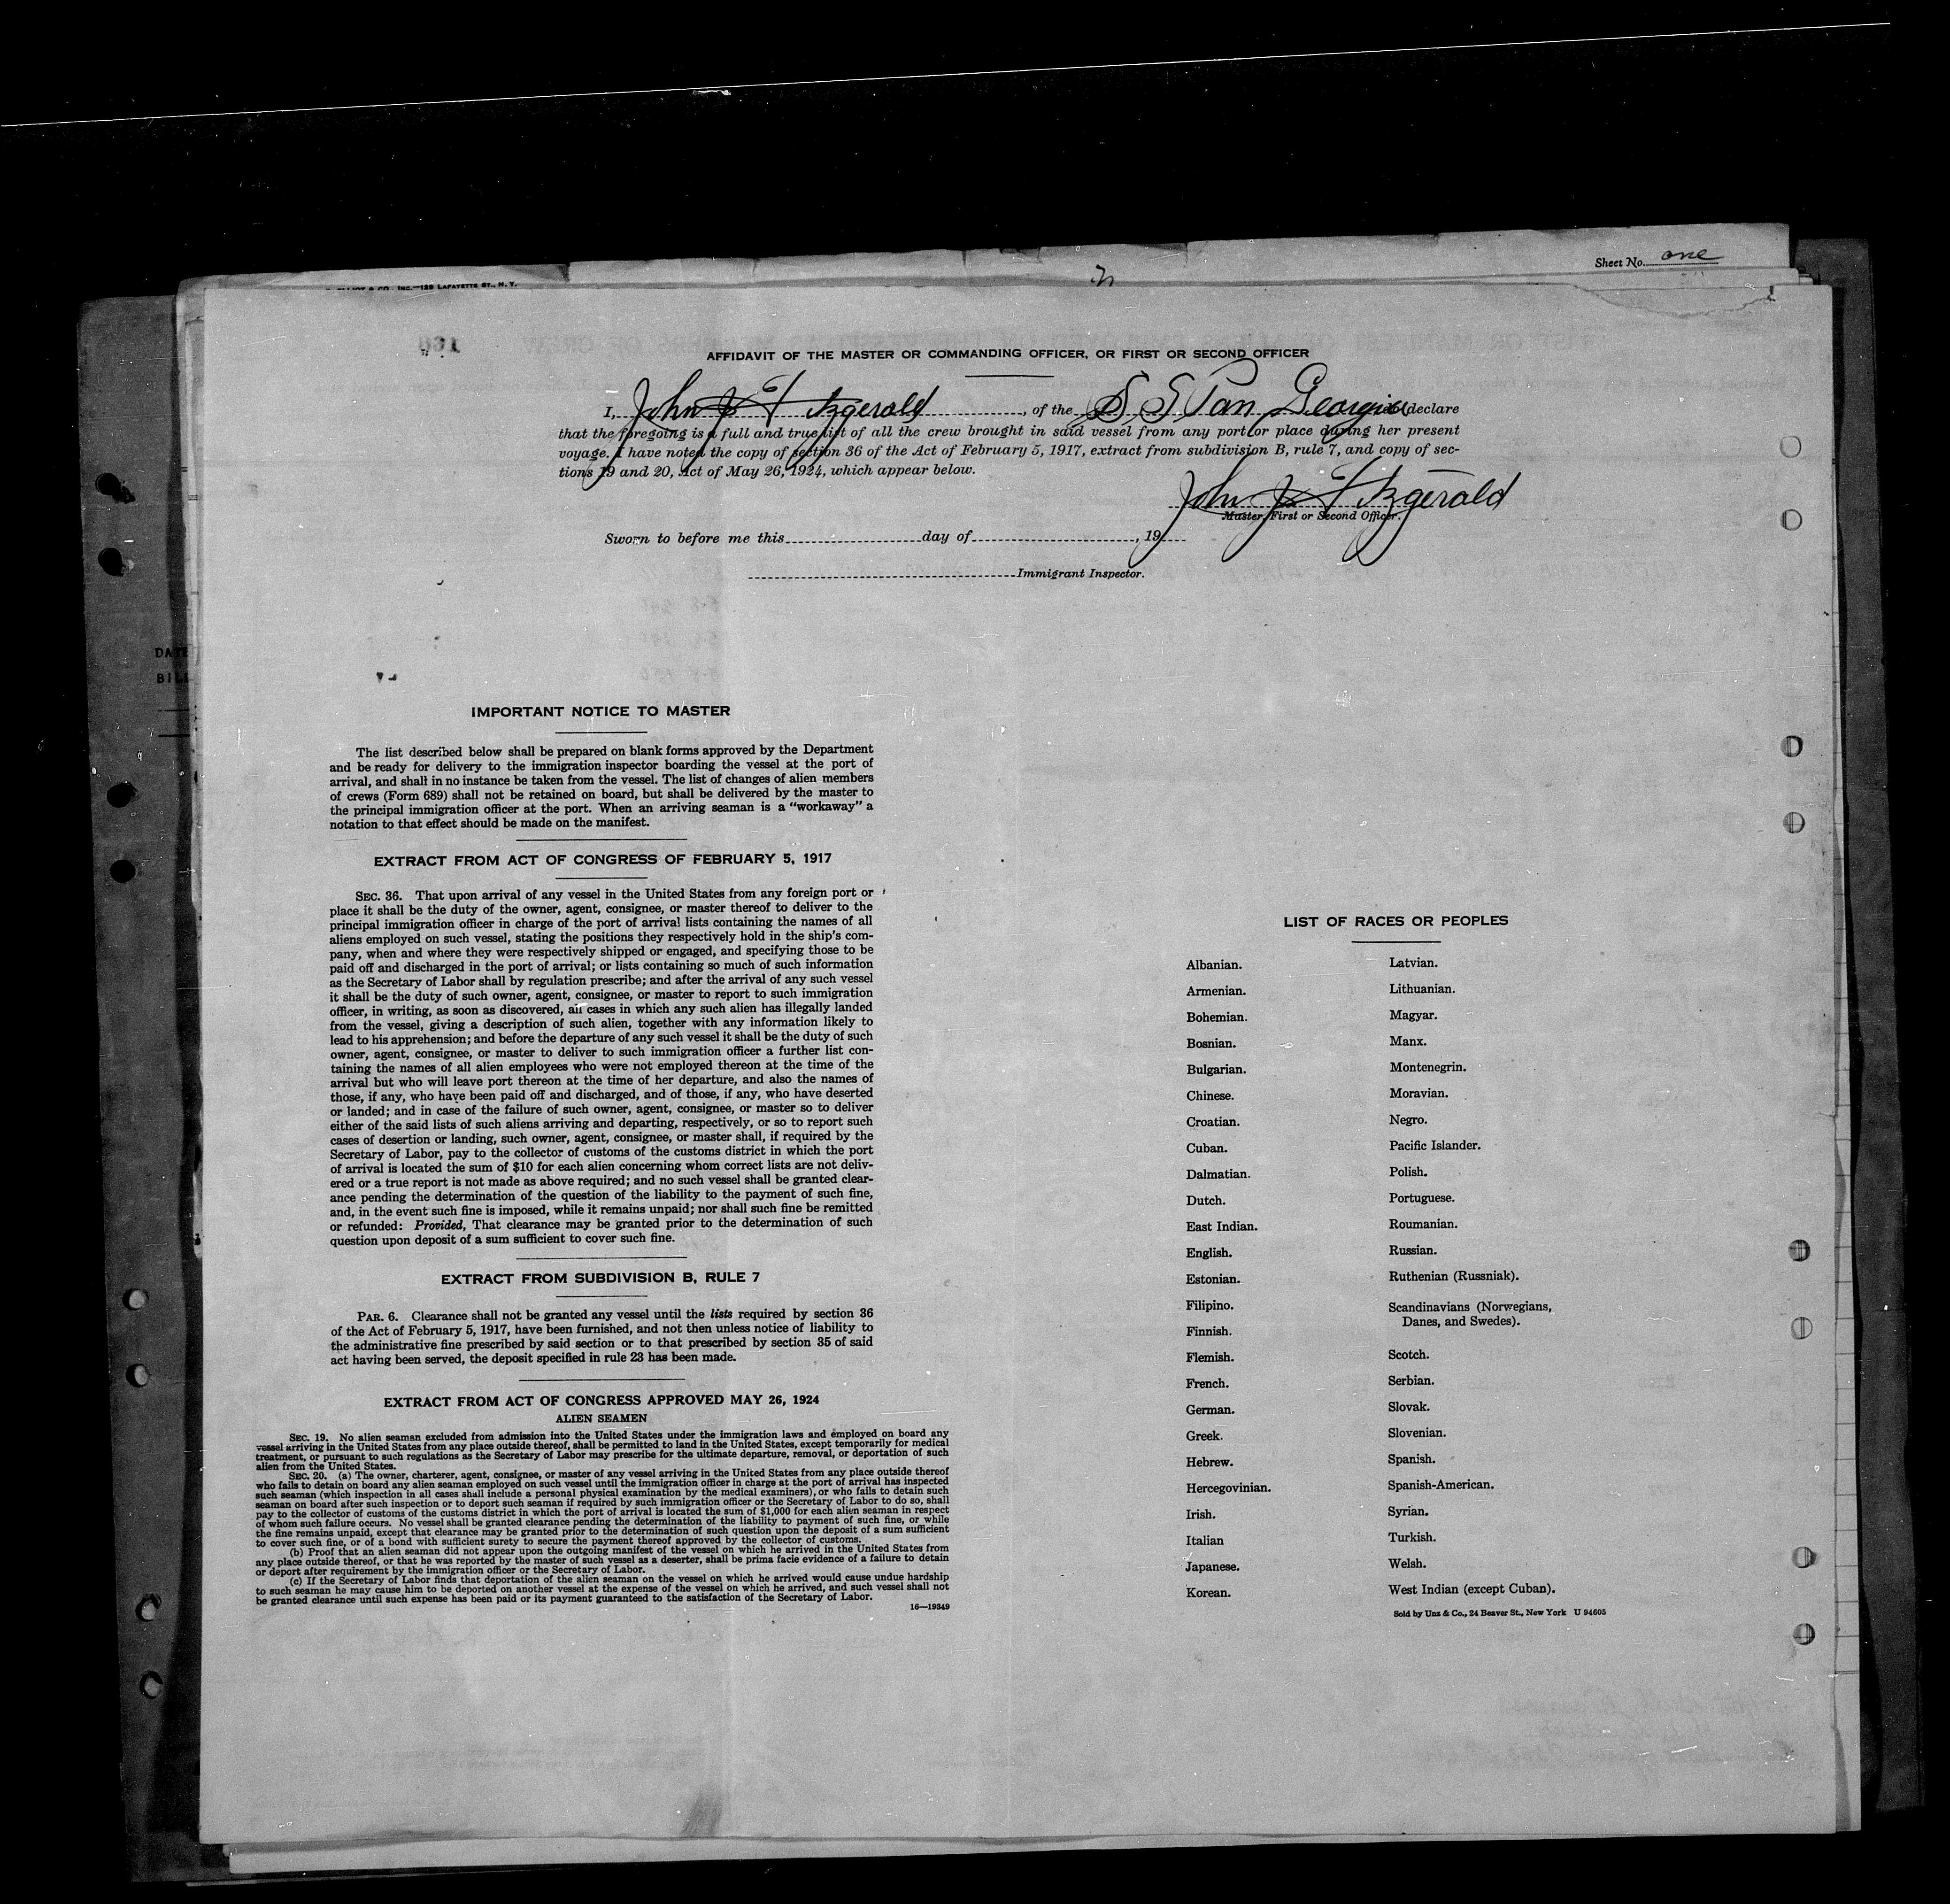 Sheet No. one
INC.—129 LAFAYETTE ST., N. Y.
AFFIDAVIT OF THE MASTER OR COMMANDING OFFICER, OR FIRST OR SECOND OFFICER
I, John J Fitzgerald, of the S S Pan Georgia declare
that the foregoing is a full and true list of all the crew brought in said vessel from any port or place during her present
voyage. I have noted the copy of section 36 of the Act of February 5, 1917, extract from subdivision B, rule 7, and copy of sec-
tions 19 and 20, Act of May 26, 1924, which appear below.
John J Fitzgerald
Master, First or Second Officer.
Sworn to before me this day of , 19
Immigrant Inspector.
IMPORTANT NOTICE TO MASTER
The list described below shall be prepared on blank forms approved by the Department
and be ready for delivery to the immigration inspector boarding the vessel at the port of
arrival, and shall in no instance be taken from the vessel. The list of changes of alien members
of crews (Form 689) shall not be retained on board, but shall be delivered by the master to
the principal immigration officer at the port. When an arriving seaman is a "workaway" a
notation to that effect should be made on the manifest.
EXTRACT FROM ACT OF CONGRESS OF FEBRUARY 5, 1917
SEC. 36. That upon arrival of any vessel in the United States from any foreign port or
place it shall be the duty of the owner, agent, consignee, or master thereof to deliver to the
principal immigration officer in charge of the port of arrival lists containing the names of all
aliens employed on such vessel, stating the positions they respectively hold in the ship's com-
pany, when and where they were respectively shipped or engaged, and specifying those to be
paid off and discharged in the port of arrival; or lists containing so much of such information
as the Secretary of Labor shall by regulation prescribe; and after the arrival of any such vessel
it shall be the duty of such owner, agent, consignee, or master to report to such immigration
officer, in writing, as soon as discovered, all cases in which any such alien has illegally landed
from the vessel, giving a description of such alien, together with any information likely to
lead to his apprehension; and before the departure of any such vessel it shall be the duty of such
owner, agent, consignee, or master to deliver to such immigration officer a further list con-
taining the names of all alien employees who were not employed thereon at the time of the
arrival but who will leave port thereon at the time of her departure, and also the names of
those, if any, who have been paid off and discharged, and of those, if any, who have deserted
or landed; and in case of the failure of such owner, agent, consignee, or master so to deliver
either of the said lists of such aliens arriving and departing, respectively, or so to report such
cases of desertion or landing, such owner, agent, consignee, or master shall, if required by the
Secretary of Labor, pay to the collector of customs of the customs district in which the port
of arrival is located the sum of $10 for each alien concerning whom correct lists are not deliv-
ered or a true report is not made as above required; and no such vessel shall be granted clear-
ance pending the determination of the question of the liability to the payment of such fine,
and, in the event such fine is imposed, while it remains unpaid; nor shall such fine be remitted
or refunded: Provided, That clearance may be granted prior to the determination of such
question upon deposit of a sum sufficient to cover such fine.
EXTRACT FROM SUBDIVISION B, RULE 7
PAR. 6. Clearance shall not be granted any vessel until the lists required by section 36
of the Act of February 5, 1917, have been furnished, and not then unless notice of liability to
the administrative fine prescribed by said section or to that prescribed by section 35 of said
act having been served, the deposit specified in rule 23 has been made.
EXTRACT FROM ACT OF CONGRESS APPROVED MAY 26, 1924
ALIEN SEAMEN
SEC. 19. No alien seaman excluded from admission into the United States under the immigration laws and employed on board any
vessel arriving in the United States from any place outside thereof, shall be permitted to land in the United States, except temporarily for medical
treatment, or pursuant to such regulations as the Secretary of Labor may prescribe for the ultimate departure, removal, or deportation of such
alien from the United States.
SEC. 20. (a) The owner, charterer, agent, consignee, or master of any vessel arriving in the United States from any place outside thereof
who fails to detain on board any alien seaman employed on such vessel until the immigration officer in charge at the port of arrival has inspected
such seaman (which inspection in all cases shall include a personal physical examination by the medical examiners), or who fails to detain such
seaman on board after such inspection or to deport such seaman if required by such immigration officer or the Secretary of Labor to do so, shall
pay to the collector of customs of the customs district in which the port of arrival is located the sum of $1,000 for each alien seaman in respect
of whom such failure occurs. No vessel shall be granted clearance pending the determination of the liability to payment of such fine, or while
the fine remains unpaid, except that clearance may be granted prior to the determination of such question upon the deposit of a sum sufficient
to cover such fine, or of a bond with sufficient surety to secure the payment thereof approved by the collector of customs.
(b) Proof that an alien seaman did not appear upon the outgoing manifest of the vessel on which he arrived in the United States from
any place outside thereof, or that he was reported by the master of such vessel as a deserter, shall be prima facie evidence of a failure to detain
or deport after requirement by the immigration officer or the Secretary of Labor.
(c) If the Secretary of Labor finds that deportation of the alien seaman on the vessel on which he arrived would cause undue hardship
to such seaman he may cause him to be deported on another vessel at the expense of the vessel on which he arrived, and such vessel shall not
be granted clearance until such expense has been paid or its payment guaranteed to the satisfaction of the Secretary of Labor.
16—19349
LIST OF RACES OR PEOPLES
Albanian.
Armenian.
Bohemian.
Bosnian.
Bulgarian.
Chinese.
Croatian.
Cuban.
Dalmatian.
Dutch.
East Indian.
English.
Estonian.
Filipino.
Finnish.
Flemish.
French.
German.
Greek.
Hebrew.
Hercegovinian.
Irish.
Italian
Japanese.
Korean.
Latvian.
Lithuanian.
Magyar.
Manx.
Montenegrin.
Moravian.
Negro.
Pacific Islander.
Polish.
Portuguese.
Roumanian.
Russian.
Ruthenian (Russniak).
Scandinavians (Norwegians,
Danes, and Swedes).
Scotch.
Serbian.
Slovak.
Slovenian.
Spanish.
Spanish-American.
Syrian.
Turkish.
Welsh.
West Indian (except Cuban).
Sold by Unz & Co., 24 Beaver St., New York U 94605